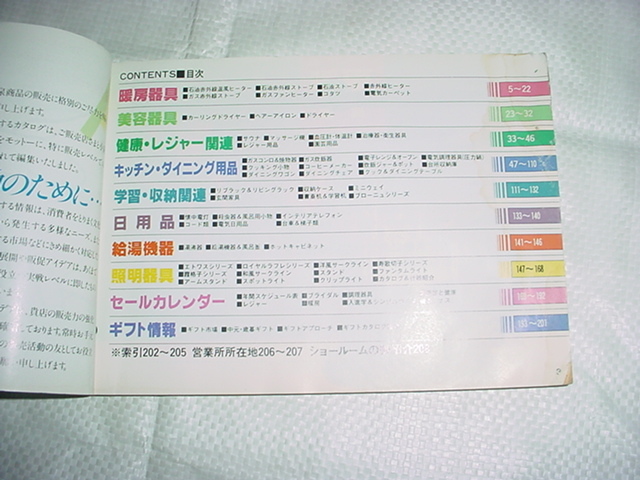 CONTENTS■目次
暖房器具 ■石油赤外線温風ヒーター ■石油赤外線ストーブ ■石油ストーブ ■赤外線ヒーター
■ガス赤外線ストーブ ■ガスファンヒーター ■コタツ ■電気カーペット
5〜22
美容器具 ■カーリングドライヤー ■ヘアーアイロン ■ドライヤー
23〜32
健康・レジャー関連 ■サウナ ■マッサージ機 ■血圧計・体温計 ■治療器・衛生器具
■レジャー用品
33〜46
キッチン・ダイニング用品 ■ガスコンロ&焼物器 ■ガス炊飯器 ■電子レンジ&オーブン ■電気調理器具(圧力鍋)
■クッキング小物 ■コーヒーメーカー ■炊飯ジャー&ポット ■台所収納庫
■ダイニングワゴン ■ダイニングチェア ■テーブル
47〜110
学習・収納関連 ■リブラック&リビングラック ■収納ケース ■ミニウェイ
■玄関家具 ■書畜机&学習机 ■ブローニュシリーズ
111〜132
日用品 ■懐中電灯 ■殺虫器&風呂用小物 ■インテリアテレフォン
■コード類 ■電気日用品 ■台車&椅子類
133〜140
給湯機器 ■湯沸器 ■給湯機器&風呂釜 ■ホットキャビネット
141〜146
照明器具 ■エトワスシリーズ ■ロイヤルラフレシリーズ ■洋風サークライン ■寿歌切子シリーズ
■民格子シリーズ ■和風サークライン ■スタンド ■ファンタルライト
■アームスタンド ■スポットライト ■クリップライト
147〜168
セールカレンダー ■年間スケジュール表 ■ブライダル ■調理器具
■レジャー
ギフト情報 ■ギフト市場 ■中元・歳暮ギフト ■ギフトアプローチ
183〜201
※索引202〜205 営業所所在地206〜207 ショールームの
庭商品の販売に格別のご
申し上げます。
するカタログは、ご販売店さまより
モットーに、特に販売レベルで
れて編集いたしました。
のために…
する情報は、消費者をとりまく
から発生する多様なニーズ、ま
する市場などにきめ細かく対応
展開や販促アイデアは、
役立つ実戦レベルに即した
すとともに、貴店の販売力の強
ております。常時お手
売活動の友としてお役
い申し上げます。